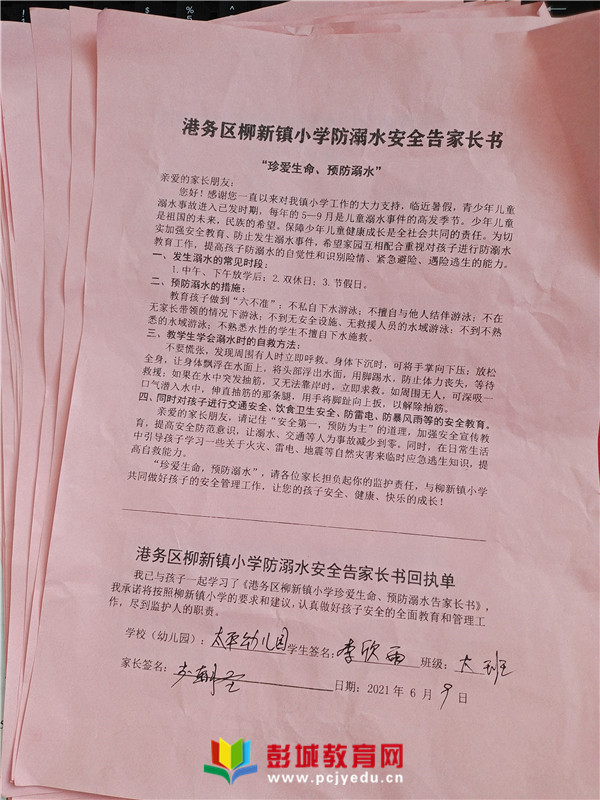 港务区柳新镇小学防溺水安全告家长书
“珍爱生命、预防溺水”
亲爱的家长朋友：
您好！感谢您一直以来对我镇小学工作的大力支持，临近暑假，青少年儿童
溺水事故进入已发时期，每年的5—9月是儿童溺水事件的高发季节。少年儿童
是祖国的未来，民族的希望。保障少年儿童健康成长是全社会共同的责任。为切
实加强安全教育、防止发生溺水事件，希望家园互相配合重视对孩子进行防溺水
教育工作，提高孩子防溺水的自觉性和识别险情、紧急避险、遇险逃生的能力。
一、发生溺水的常见时段：
1.中午、下午放学后；2.双休日；3.节假日。
二、预防溺水的措施：
教育孩子做到“六不准”：不私自下水游泳；不擅自与他人结伴游泳；不在
无家长带领的情况下游泳；不到无安全设施、无救援人员的水域游泳；不到不熟
悉的水域游泳；不熟悉水性的学生不擅自下水施救。
三、教学生学会溺水时的自救方法：
不要慌张，发现周围有人时立即呼救。身体下沉时，可将手掌向下压；放松
全身，让身体飘浮在水面上，将头部浮出水面，用脚踢水，防止体力丧失，等待
救援；如果在水中突发抽筋，又无法靠岸时，立即求救。如周围无人，可深吸一
口气潜入水中，伸直抽筋的那条腿，用手将脚趾向上扳，以解除抽筋。
四、同时对孩子进行交通安全、饮食卫生安全、防雷电、防暴风雨等的安全教育。
亲爱的家长朋友，请记住“安全第一，预防为主”的道理，加强安全宣传教
育，提高安全防范意识，让溺水、交通等人为事故减少到零。同时，在日常生活
中引导孩子学习一些关于火灾、雷电、地震等自然灾害来临时应急逃生知识，提
高自救能力。
“珍爱生命，预防溺水”，请各位家长担负起你的监护责任，与柳新镇小学
共同做好孩子的安全管理工作，让您的孩子安全、健康、快乐的成长！
港务区柳新镇小学防溺水安全告家长书回执单
我已与孩子一起学习了《港务区柳新镇小学珍爱生命、预防溺水告家长书》，
我承诺将按照柳新镇小学的要求和建议，认真做好孩子安全的全面教育和管理工
作，尽到监护人的职责。
学校（幼儿园）：太平幼儿园学生签名：李欣雨 班级：大班
家长签名： 日期：2021年6月9日
彭城教育网
www.pcjyedu.cn